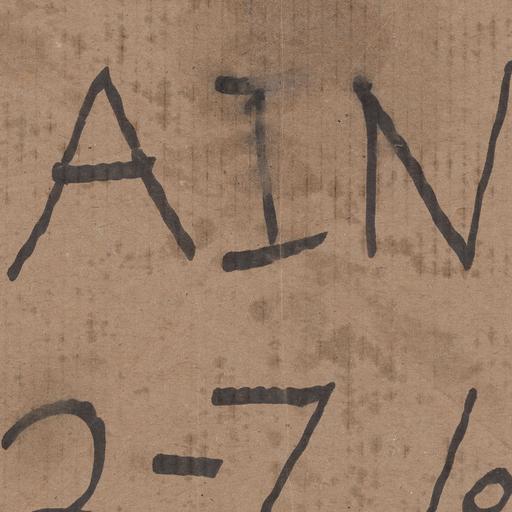 AIN
2-7